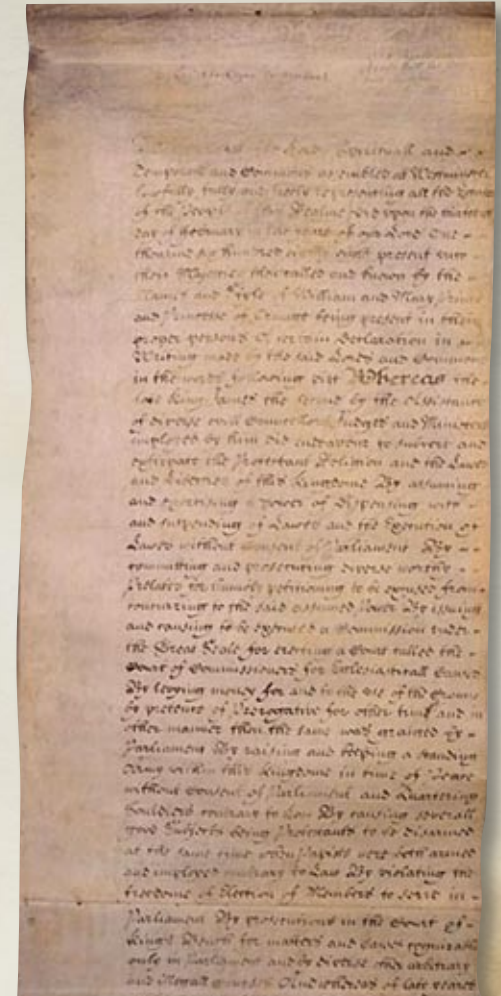 the Lords Spirituall and
Temporall and Commons assembled at Westminster
lawfully fully and freely representing all the Estates
of the People of this Realme did upon the thirteenth
day of February in the yeare of our Lord One
thousand six hundred eighty eight present unto
their Majesties then called and knowne by the
Names and Stile of William and Mary Prince
and Princesse of Orange being present in their
proper persons a certain Declaration in
Writing made by the said Lords and Commons
in the words following vizt Whereas the
late King James the Second by the Assistance
of diverse evill Councellors Judges and Ministers
imployed by him did endeavour to subvert and
extirpate the Protestant Religion and the Lawes
and Liberties of this Kingdome By assuming
and exercising a power of dispensing with
and suspending of Lawes and the Execution of
Lawes without Consent of Parliament By
committing and prosecuting diverse worthy
Prelates for humbly petitioning to be excused from
concurring to the said assumed Power By issuing
and causing to be executed a Commission under
the Great Seale for erecting a Court called the
Court of Commissioners for Ecclesiasticall Causes
By levying money for and to the use of the Crowne
by pretence of Prerogative for other time and in
other manner then the same was granted by
Parliament By raising and keeping a standing
Army within this Kingdome in time of Peace
without Consent of Parliament and Quartering
Souldiers contrary to Law By causing severall
good Subjects being Protestants to be disarmed
at the same time when Papists were both armed
and imployed contrary to Law By violating the
freedome of Election of Members to serve in
Parliament By prosecutions in the Court of
Kings Bench for matters and causes cognizable
only in Parliament and by diverse other arbitrary
and illegall courses And whereas of late yeares